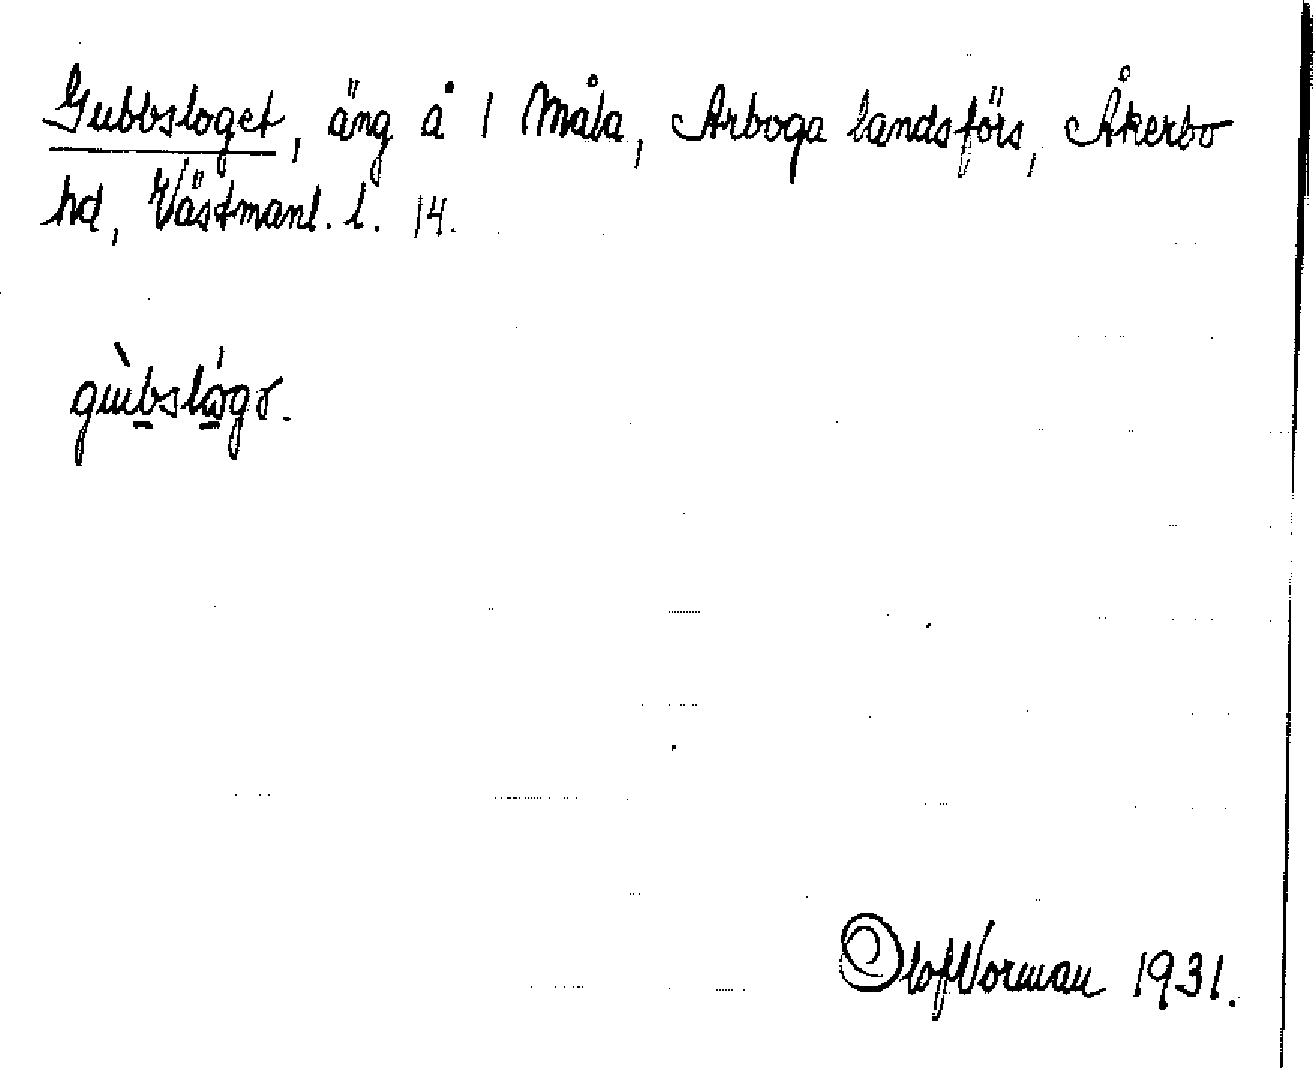 Gubbsloget, äng å 1 Måla, Arboga landsförs, Åkerbo
hd, Västmanl. l. 14.
gùbslógə.
Olof Norman 1931.